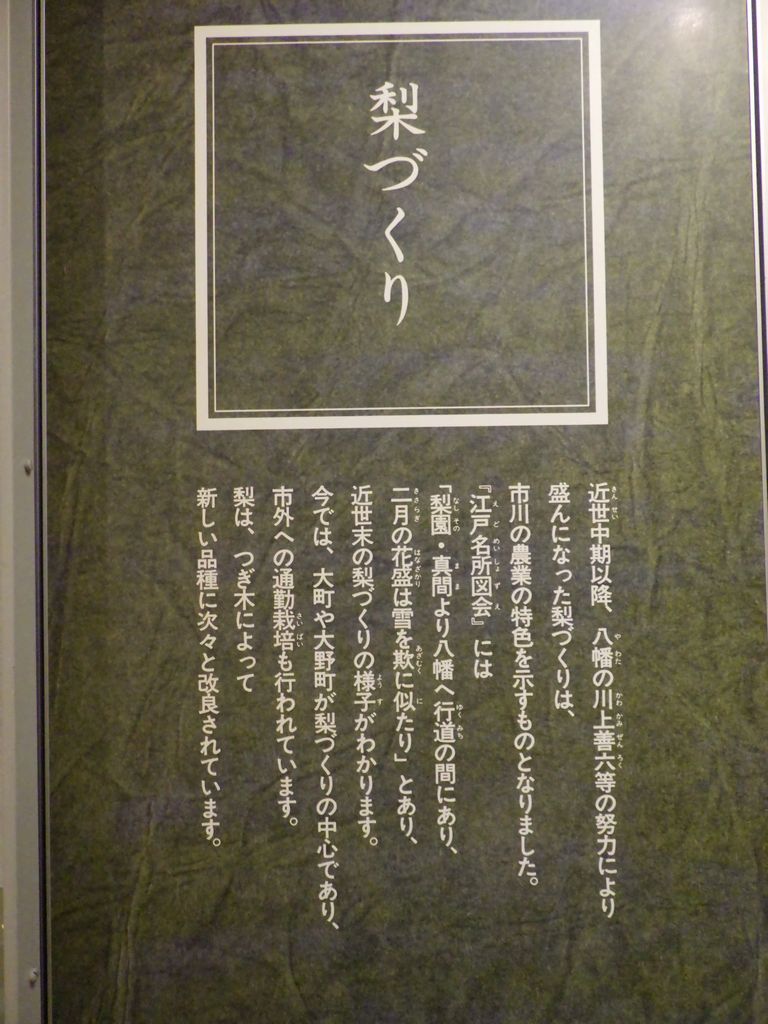 梨づくり
近世中期以降、八幡の川上善六等の努力により
盛んになった梨づくりは、
市川の農業の特色を示すものとなりました。
『江戸名所図会』には
「梨園・真間より八幡へ行道の間にあり、
二月の花盛は雪を欺に似たり」とあり、
近世末の梨づくりの様子がわかります。
今では、大町や大野町が梨づくりの中心であり、
市外への通勤栽培も行われています。
梨は、つぎ木によって
新しい品種に次々と改良されています。